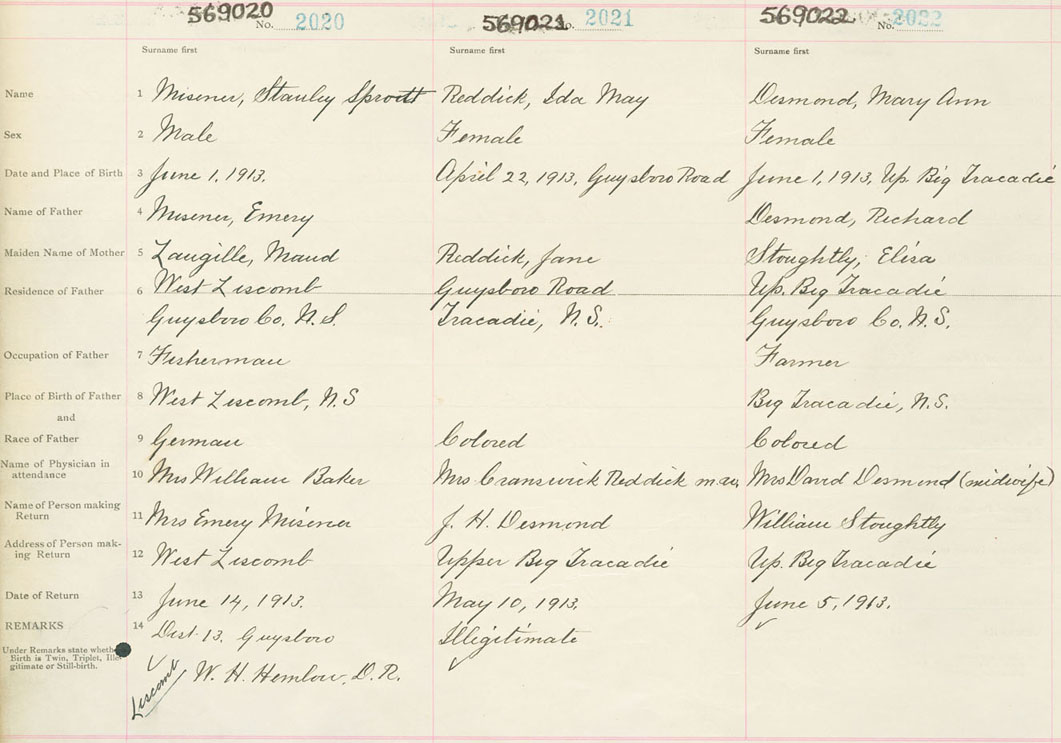 569020 No. 2020 569021 No. 2021 569022 No. 2022
Surname first Surname first Surname first
Name 1 Misener, Stanley Sprott Reddick, Ida May Desmond, Mary Ann
Sex 2 Male Female Female
Date and Place of Birth 3 June 1, 1913. April 22, 1913, Guysboro Road June 1, 1913, Up Big Tracadie
Name of Father 4 Misener, Emery Desmond, Richard
Maiden Name of Mother 5 Langille, Maud Reddick, Jane Stoughtly, Elisa
Residence of Father 6 West Liscomb Guysboro Road Up. Big Tracadie
Guysboro Co. N.S. Tracadie, N.S. Guysboro Co. N.S.
Occupation of Father 7 Fisherman Farmer
Place of Birth of Father 8 West Liscomb, N.S Big Tracadie, N.S.
and
Race of Father 9 German Colored Colored
Name of Physician in
attendance 10 Mrs William Baker Mrs Cranswick Reddick m.w. Mrs David Desmond (midwife)
Name of Person making
Return 11 Mrs Emery Misener J. H. Desmond William Stoughtly
Address of Person mak-
ing Return 12 West Liscomb Upper Big Tracadie Up. Big Tracadie
Date of Return 13 June 14, 1913. May 10, 1913. June 5, 1913.
REMARKS 14 Dist. 13. Guysboro Illegitimate
Under Remarks state wheth
Birth is Twin, Triplet, Ille-
gitimate or Still-birth.
W. H. Hemlow, D.R.
Liscomb